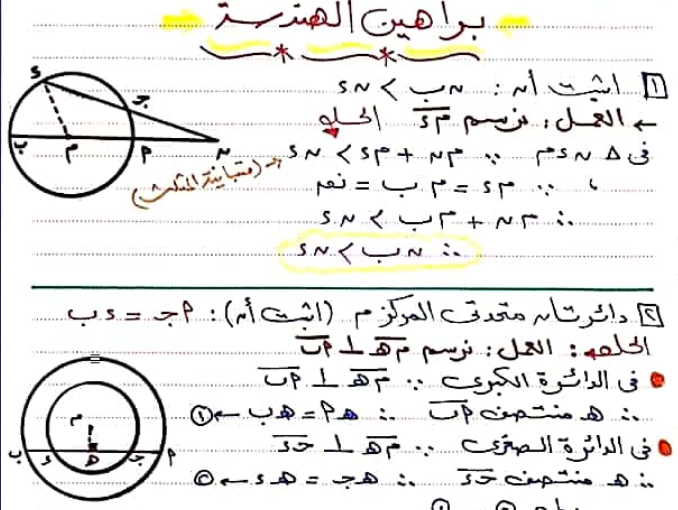 براهين الهندسة
١ اثبت أن : ن ب > ن د
← العمل : نرسم م د الحل
فى Δ م د ن ∵ م ن + م د > ن د → (متباينة المثلث)
، ∵ م د = م ب = نق
∴ م ن + م ب > ن د
∴ ن ب > ن د
د جـ ب م أ ن
٢ دائرتان متحدتى المركز م (اثبت أن) : أ جـ = د ب
الحل : العمل : نرسم م هـ ⊥ أ ب
فى الدائرة الكبرى ∵ م هـ ⊥ أ ب
∴ هـ منتصف أ ب ∴ هـ أ = هـ ب ← ①
فى الدائرة الصغرى ∵ م هـ ⊥ جـ د
∴ هـ منتصف جـ د ∴ هـ جـ = هـ د ← ②
م ب د هـ جـ أ